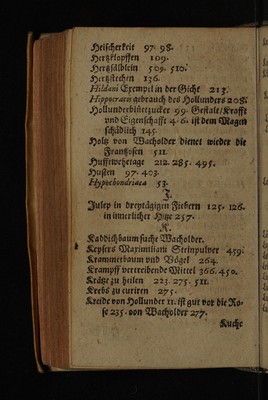 Heischerkeit 97. 98.
Hertzklopffen 109.
Hertzsälblein 509. 510.
Hertzstechen 136.
Hildani Exempel in der Giche 213.
Hippocratis gebrauch des Hollunders 208.
Hollunderblütezucker 99. Gestalt/Krafft
und Eigenschafft 4. 6. ist dem Magen
schädlich 145.
Holtz von Wacholder dienet wieder die
Frantzosen 511.
Hufftwehetage 212. 285. 495.
Husten 97. 403.
Hypochondriaca 53.
J.
Julep in dreytägigen Fiebern 125. 126.
in innerlicher Hitze 257.
K.
Kaddichbaum suche Wacholder.
Keysers Maximiliani Steinpulver 459.
Krammetbaum vnd Vögel 264.
Krampff vertreibende Mittel 366. 450.
Krätze zu heilen 223. 275. 511.
Krebs zu curiren 275.
Kreide von Hollunder 11. ist gut vor die Ro-
se 235. von Wacholder 277.
Kuche